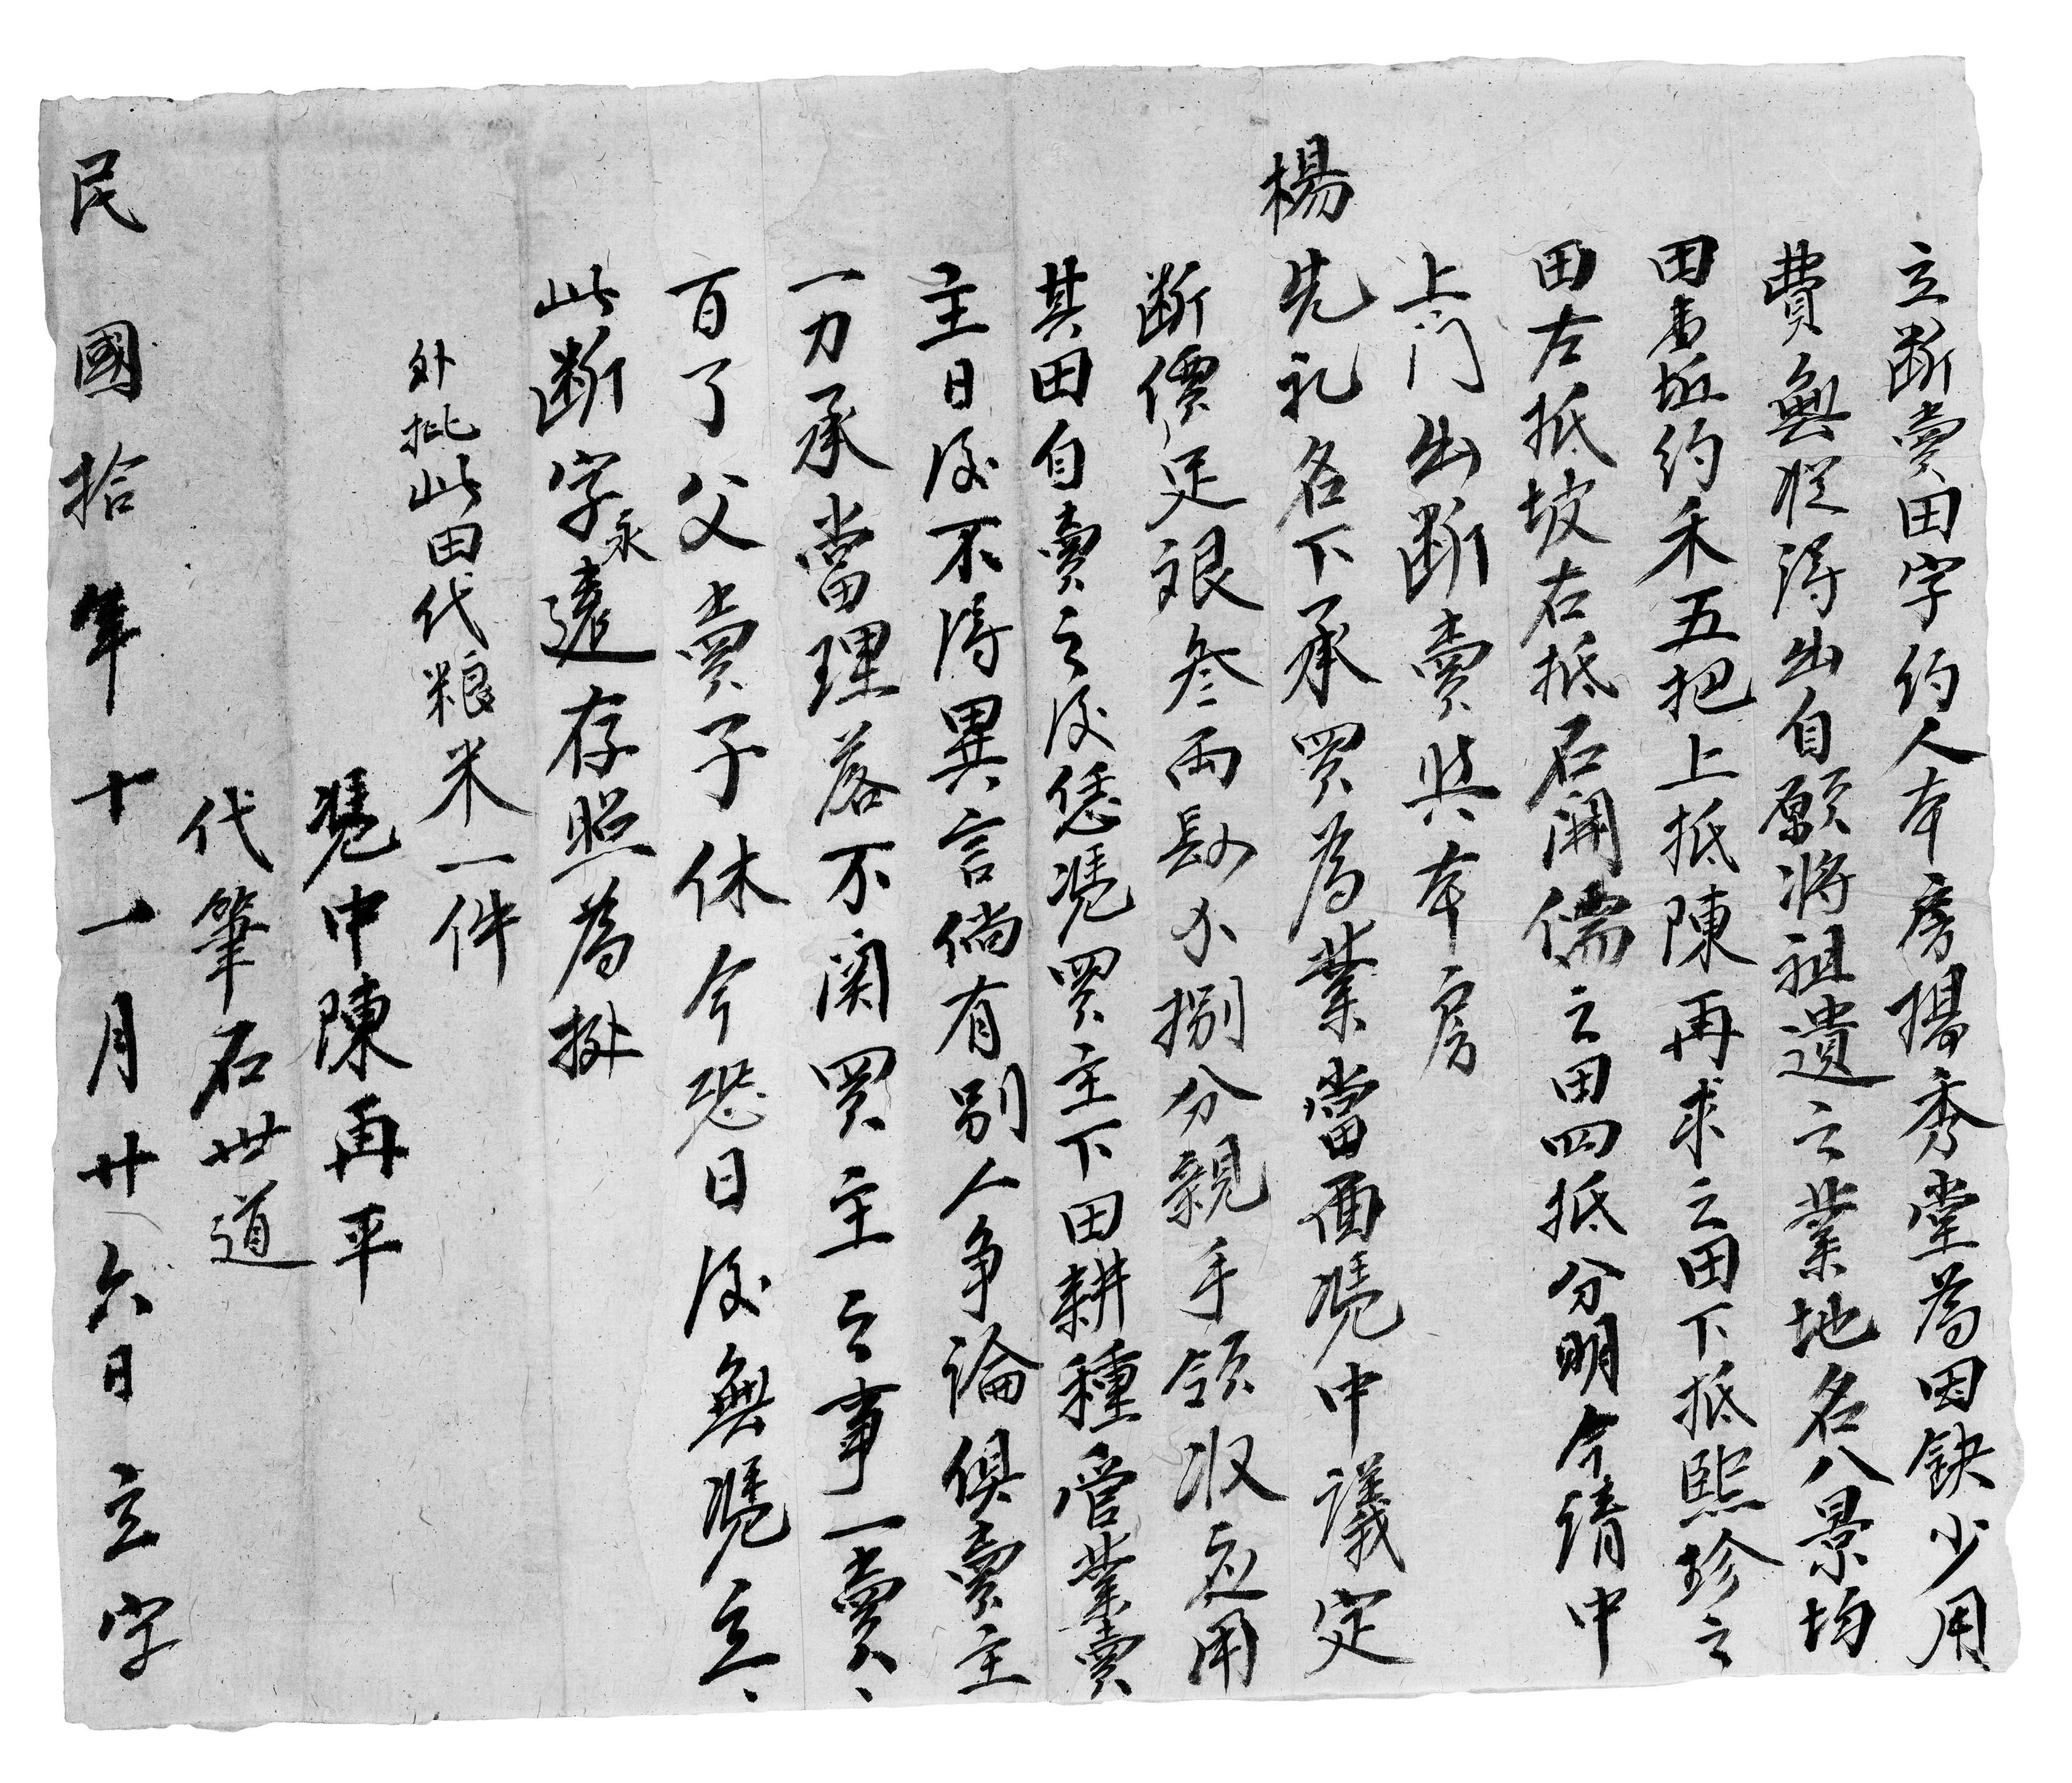 立断賣田字約人本房楊秀堂為因缺少用
費無從得出自願將祖遺之業地名八景均
田壹坵約禾五把上抵陳再求之田下抵熙珍之
田左抵坡右抵石開儒之田四抵分明今請中
上门出断賣與本房
楊先礼名下承買為業當面凴中議定
断價足銀叁両捌分親手領收應用
其田自賣之後恁凴買主下田耕種管業賣
主日後不得異言倘有別人争論俱賣主
一力承當理落不関買主之事一賣
百了父賣子休今恐日後無凴立
此断字永遠存照為挀
外批此田代粮米一件
凴中陳再平
代筆石世道
民國拾年十一月廿六日立字